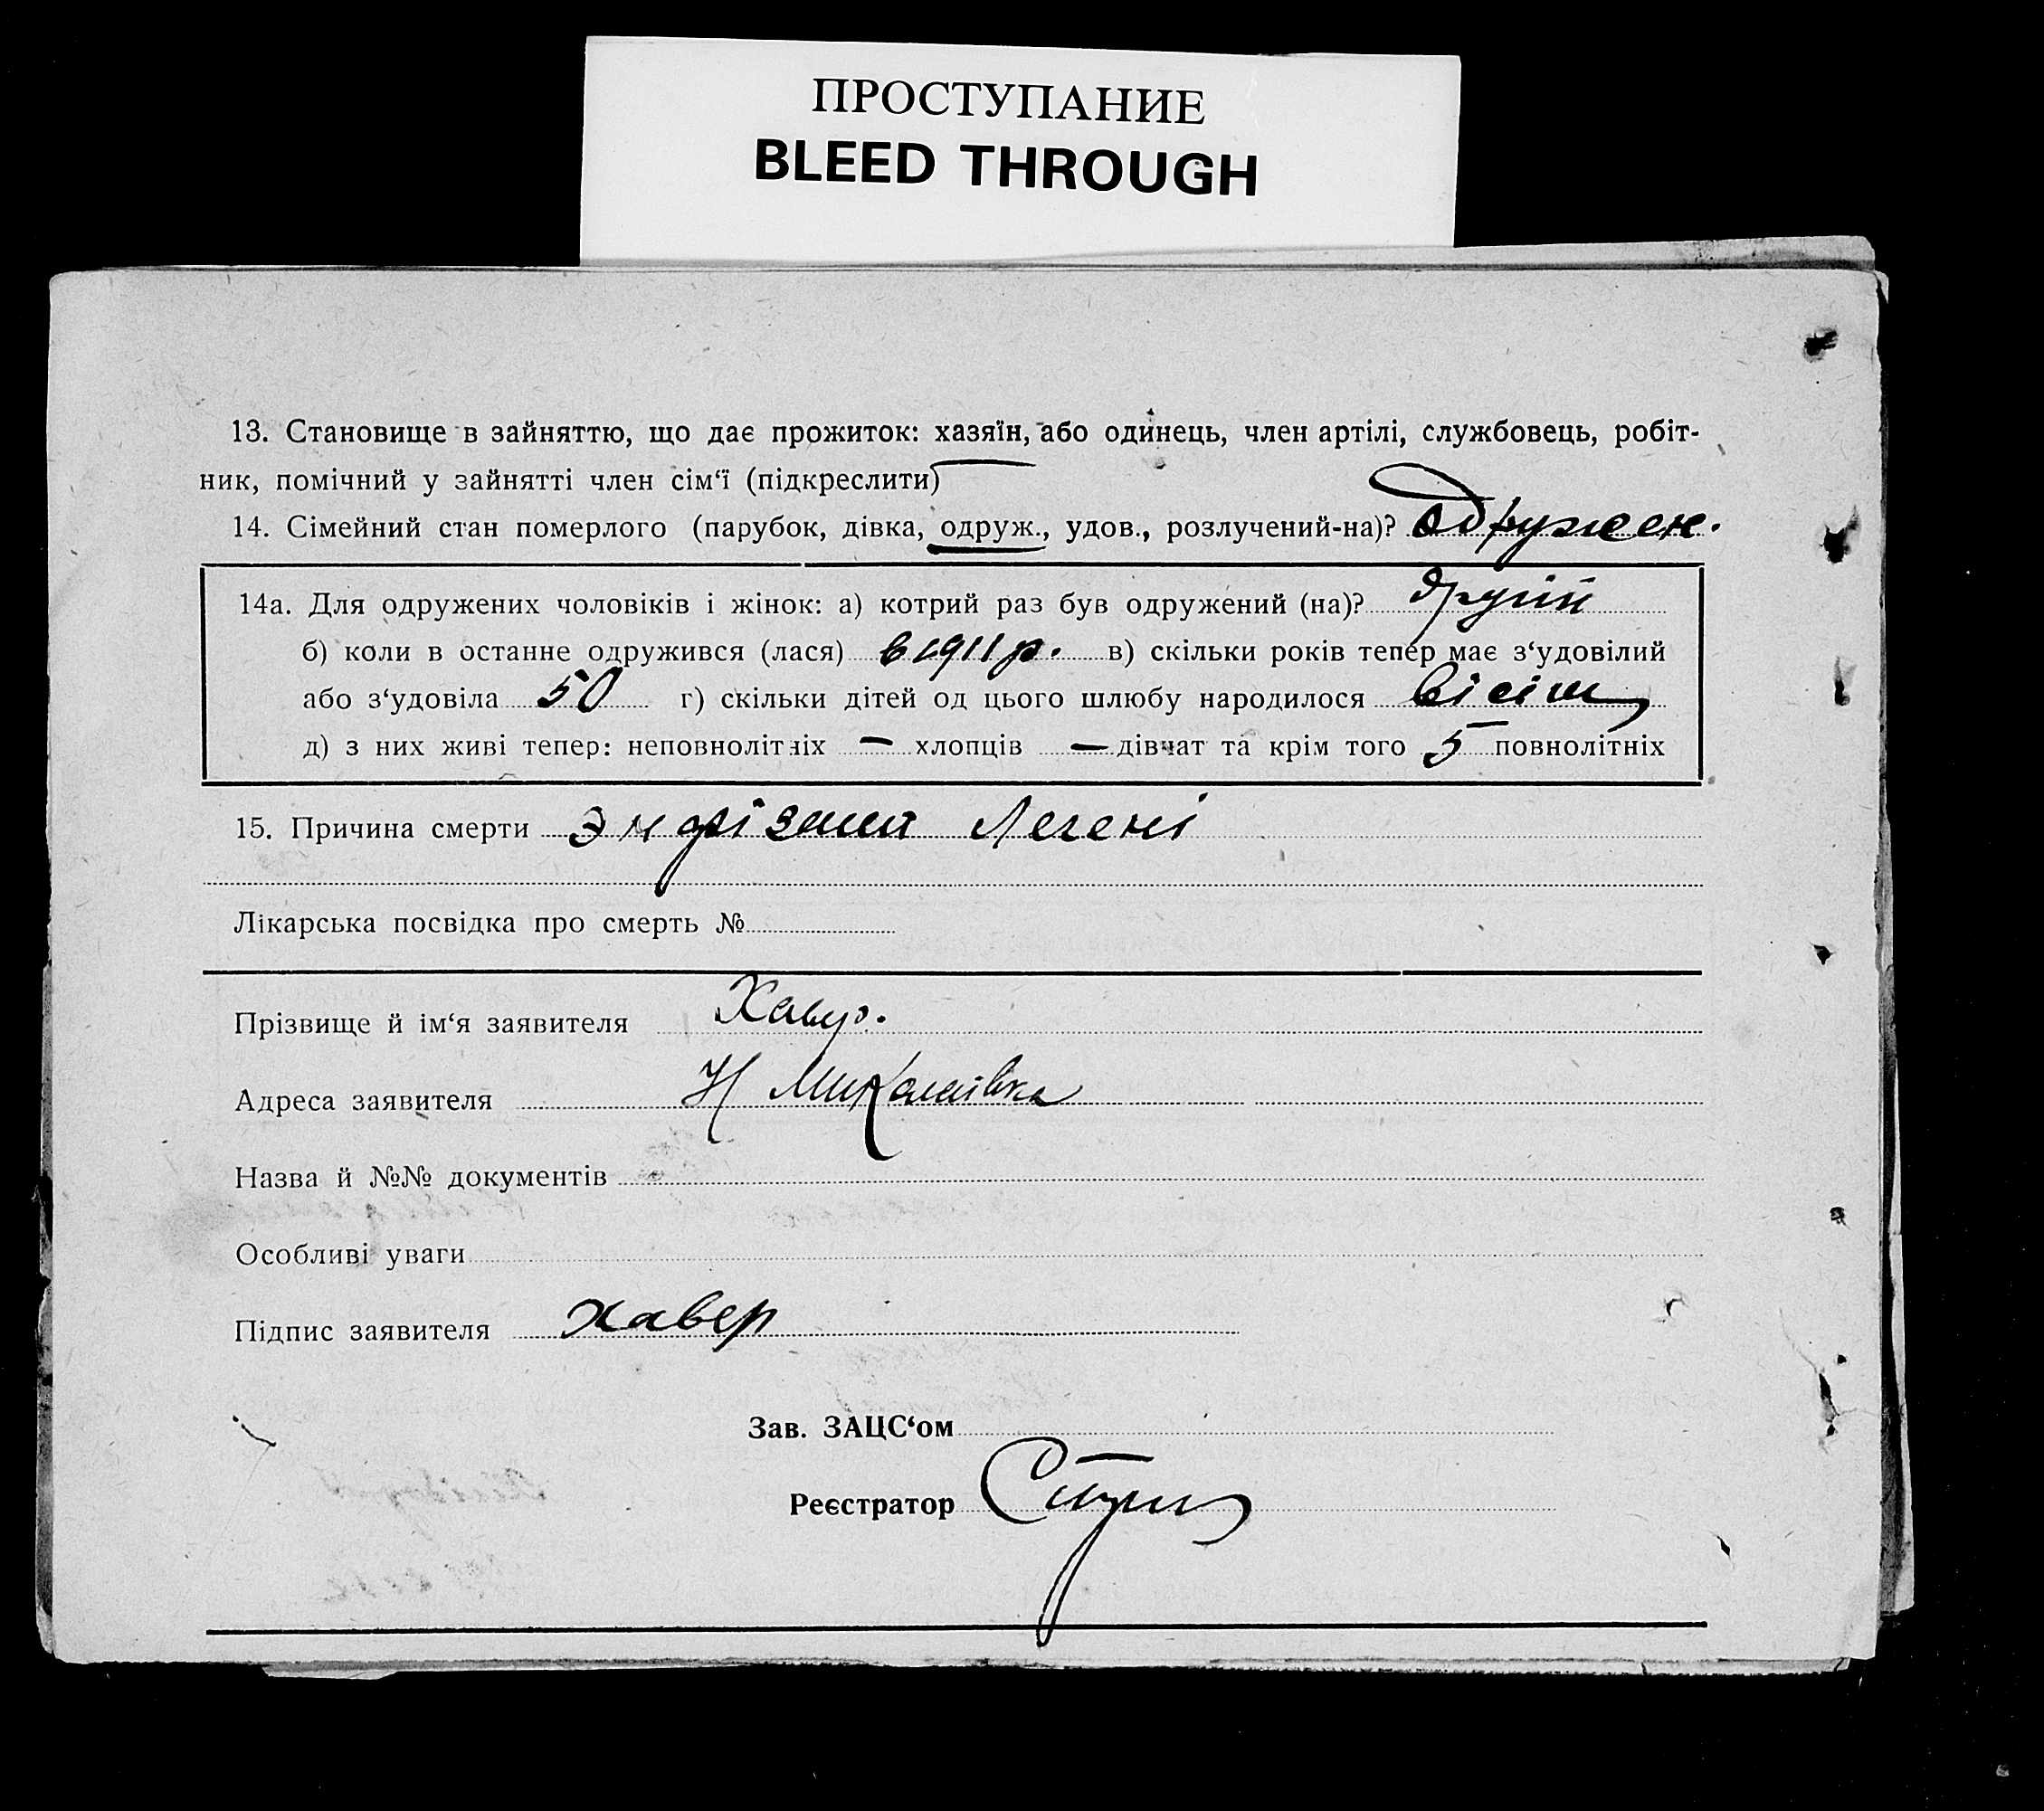 ПРОСТУПАНИЕ
BLEED THROUGH
13. Становище в зайняттю, що дає прожиток: хазяїн, або одинець, член артілі, службовець, робіт-
ник, помічний у зайнятті член сім‘ї (підкреслити)
14. Сімейний стан померлого (парубок, дівка, одруж., удов., розлучений-на)? Одружен.
14а. Для одружених чоловіків і жінок: а) котрий раз був одружений (на)? другий
б) коли в останне одружився (лася) в 1911 р. в) скільки років тепер має з‘удовілий
або з‘удовіла 50 г) скільки дітей од цього шлюбу народилося вісім
д) з них живі тепер: неповнолітніх — хлопців — дівчат та крім того 5 повнолітніх
15. Причина смерти Легені
Лікарська посвідка про смерть №
Прізвище й ім‘я заявителя
Адреса заявителя Н Миколаївка
Назва й №№ документів
Особливі уваги
Підпис заявителя хавер
Зав. ЗАЦС‘ом
Реєстратор